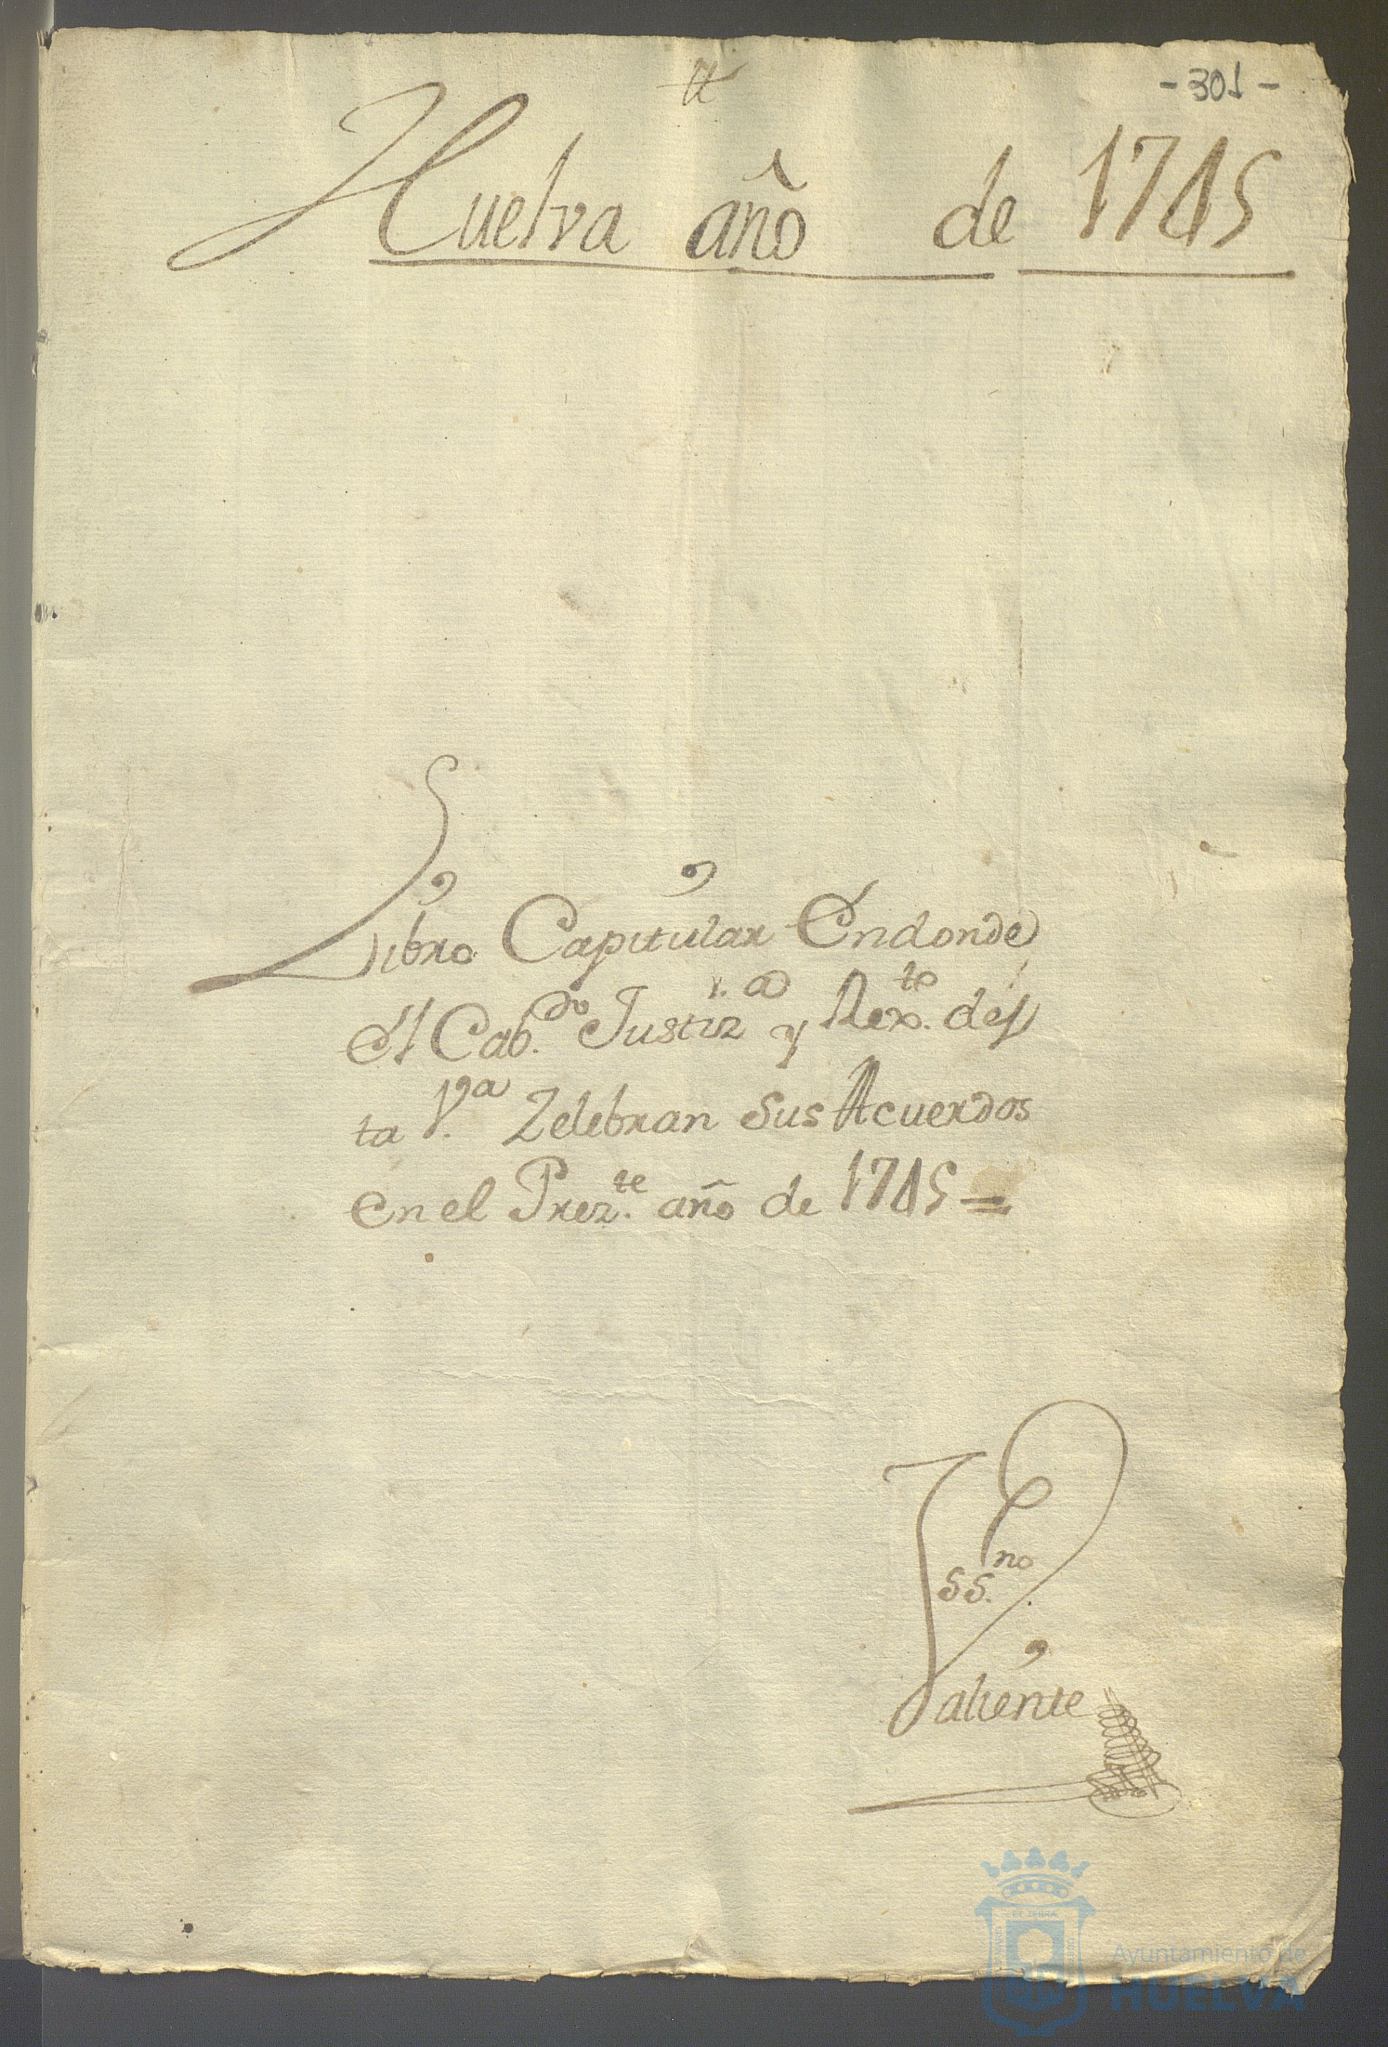 -301-
Huelva año de 1745
Libro Capitular Endonde
el Cab.do Justiz.a y Rex.to des
ta V.a Zelebran sus Acuerdos
en el Prez.te año de 1745 =
Ess.no
Valiente
Ayuntamiento de
HUELVA